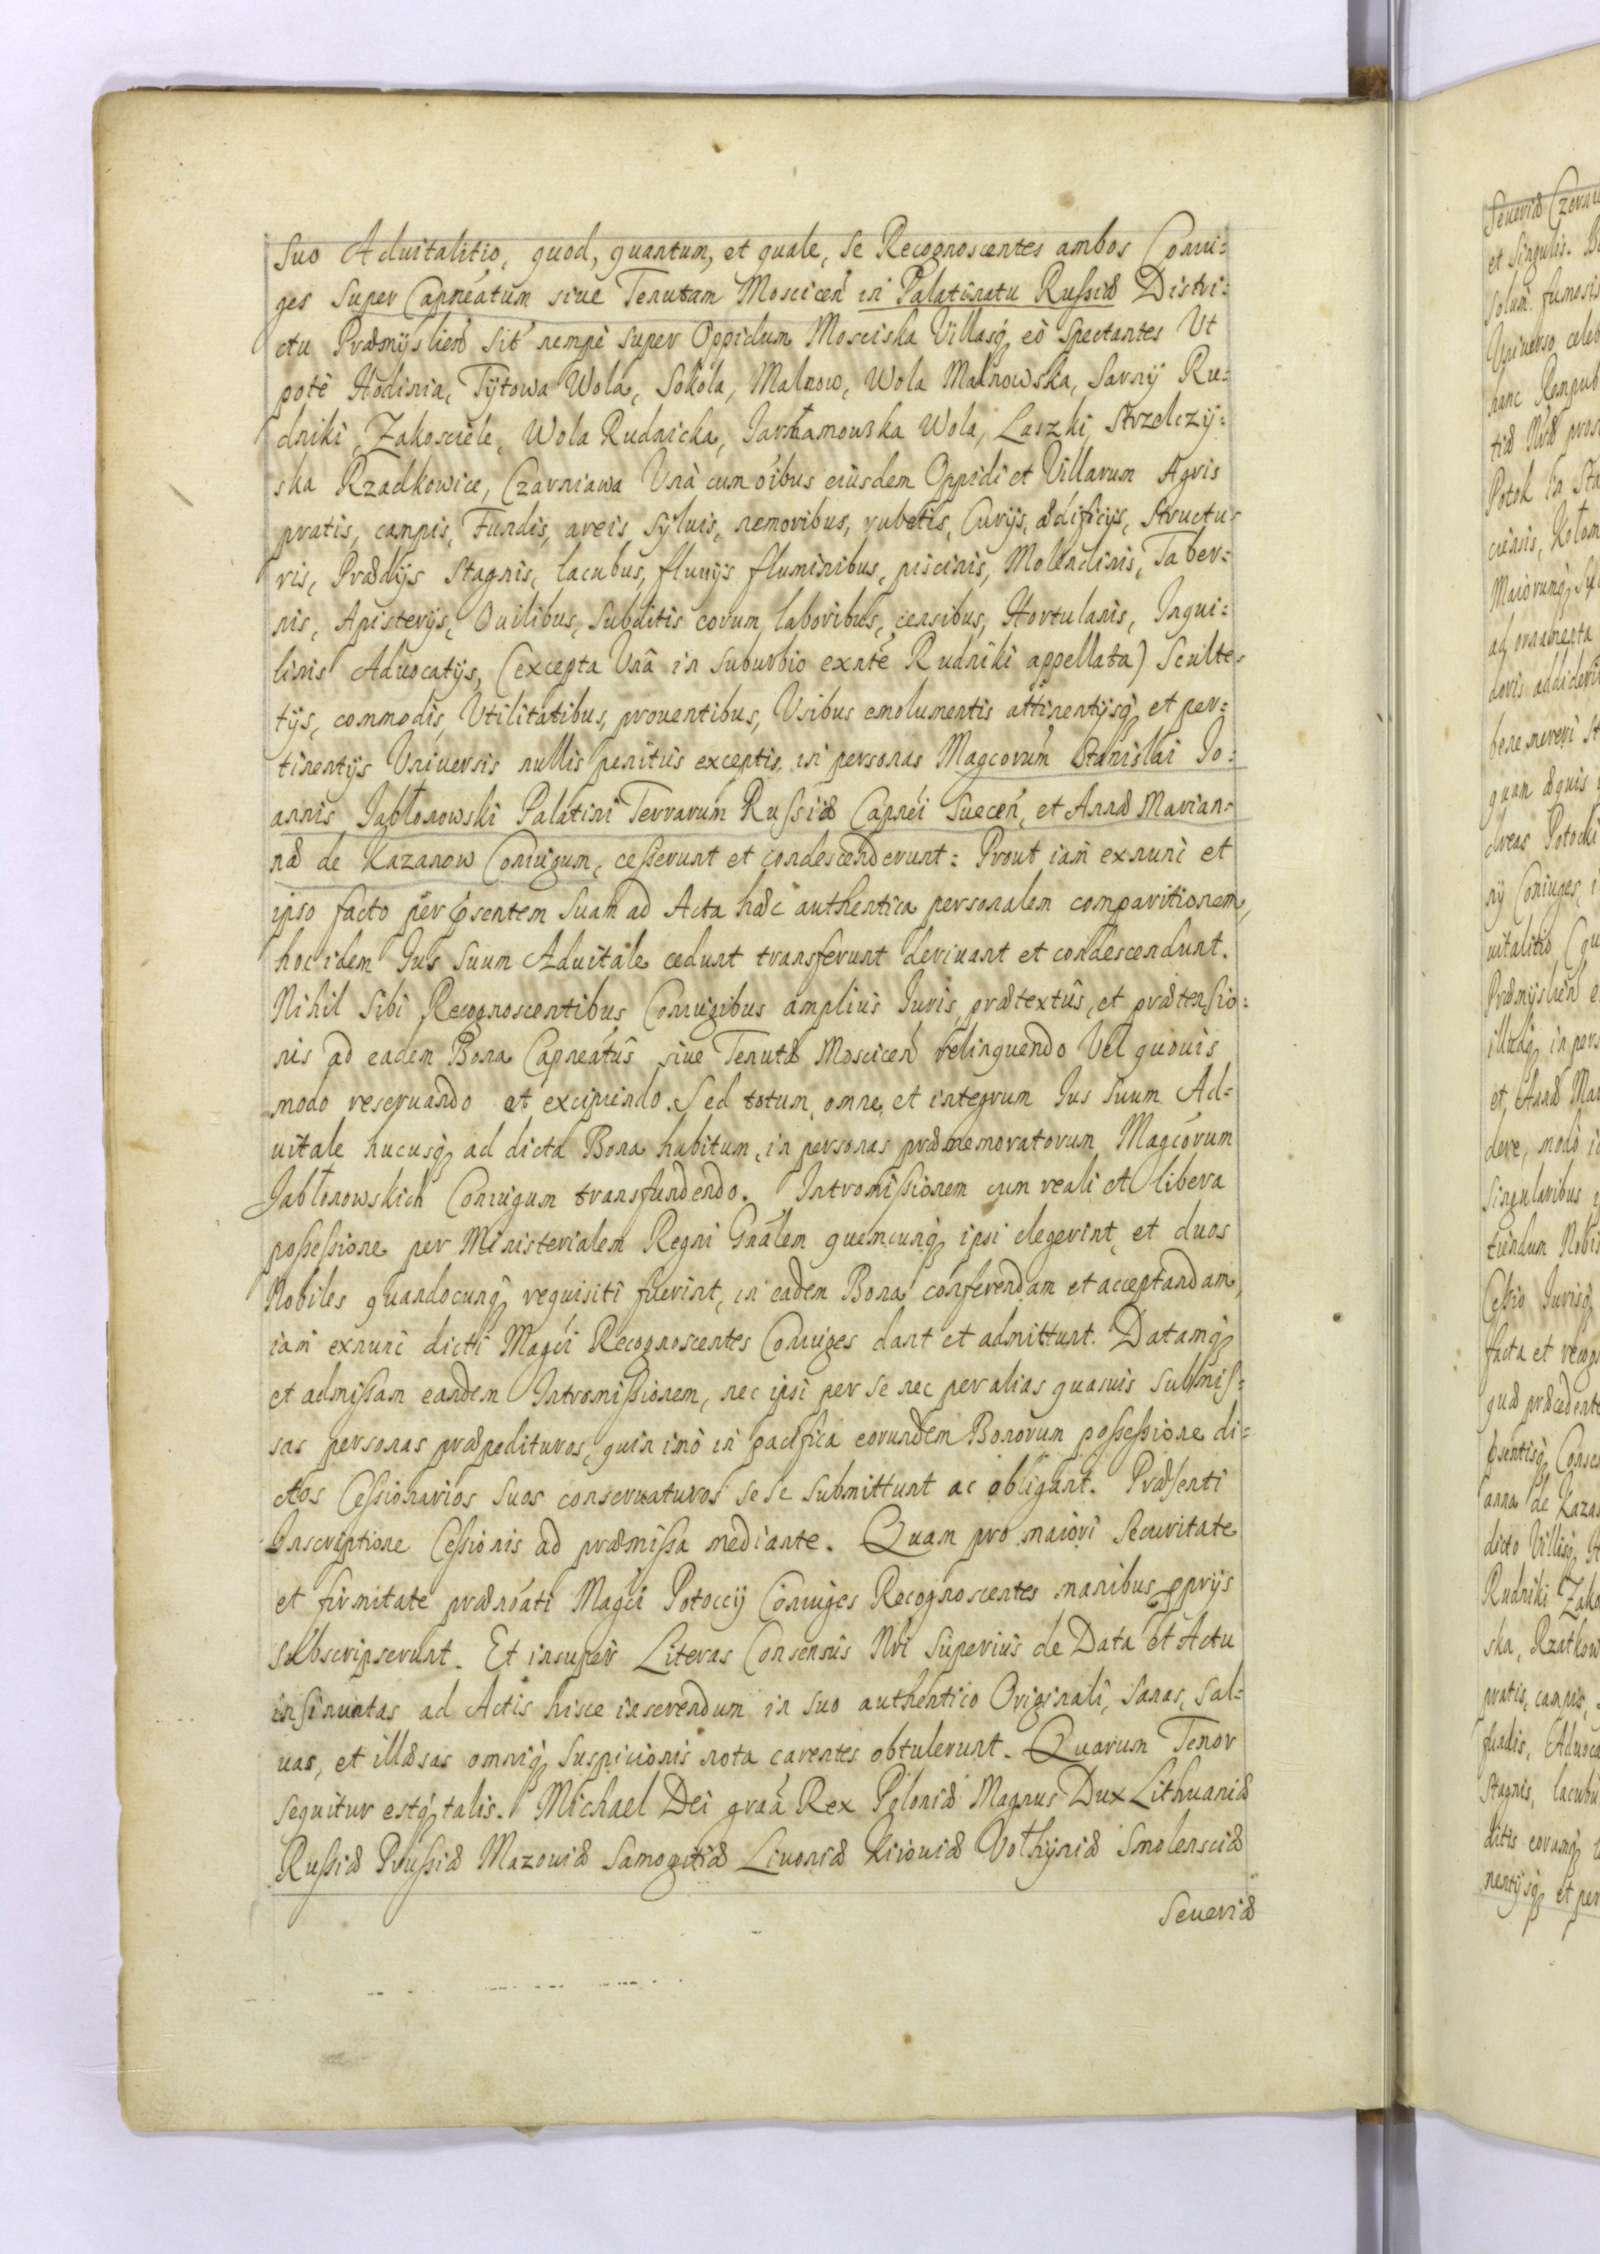 suo Aduitalitio, quod, quantum, et quale, se Recognoscentes ambos Coniu=
ges super Capneatum siue Tenutam Moscicen in Palatinatu Russiæ Distri=
ctu Præmysliens sit nempe super Oppidum Mosciska Villasq eò spectantes Vt
potè Hodinia, Tytowa Wola, Sokola, Malnow, Wola Malnowska, Sarny Ru=
dniki, Zakosciele, Wola Rudnicka, Jarhamowska Wola, Laszki, Strzelczy=
ska Rzadkowice, Czarniawa Vnà cum oibus eiusdem Oppidi et Villarum Agris
pratis, campis, Fundis, areis, syluis, nemoribus, rubetis, Curijs, ædificijs, Structu=
ris, Prædijs Stagnis, lacubus, fluuijs fluminibus, piscinis, Molendinis, Taber=
nis, Apisterijs, Ouilibus, Subditis eorum, laboribus, censibus, Hortulanis, Inqui=
linis Aduocatijs, (excepta Vnâ in suburbio exnte Rudniki appellata) Sculte=
tijs, commodis, Vtilitatibus, prouentibus, Vsibus emolumentis attinentijsq et per=
tinentijs Vniuersis nullis penitùs exceptis, in personas Magcorum Stanislai Jo=
annis Jabłonowski Palatini Terrarum Russiæ Capnei Suecen, et Annæ Marian=
næ de Kazanow Coniugum, cesserunt et condescenderunt: Prout iam exnunc et
ipso facto per psentem suam ad Acta hæc authentica personalem comparitionem,
hoc idem Jus suum Aduitale cedunt transferunt deriuant et condescendunt.
Nihil sibi Recognoscentibus Coniugibus ampliùs Juris, prætextûs, et prætensio=
nis ad eadem Bona Capneatûs siue Tenutæ Moscicen relinquendo Vel quouis
modo reseruando et excipiendo. Sed totum, omne, et integrum Jus suum Ad=
uitale hucusq ad dicta Bona habitum, in personas præmemoratorum Magcorum
Jabłonowskich Coniugum transfundendo. Intromissionem cum reali et libera
possessione per Ministerialem Regni Gnalem quemcunq ipsi elegerint, et duos
Nobiles quandocunq requisiti fuerint, in eadem Bona conferendam et acceptandam,
iam exnunc dicti Magci Recognoscentes Coniuges dant et admittunt. Datamq
et admissam eandem Intromissionem, nec ipsi per se nec per alias quasuis submis=
sas personas præpedituros, quin imò in pacifica eorundem Bonorum possessione di=
ctos Cessionarios suos conseruaturos sese submittunt ac obligant. Præsenti
Inscriptione Cessionis ad præmissa mediante. Quam pro maiori securitate
et firmitate prænoati Magci Potoccij Coniuges Recognoscentes manibus pprijs
subscripserunt. Et insuper Literas Consensûs Nri superiùs de Data et Actu
insinuatas ad Actis hisce inserendum in suo authentico Originali, sanas, sal=
uas, et illæsas omniq suspicionis nota carentes obtulerunt. Quarum Tenor
sequitur estq talis. Michael Dei graa Rex Poloniæ Magnus Dux Lithuaniæ
Russiæ Prussiæ Mazouiæ Samogitiæ Liuoniæ Kiiouiæ Volhyniæ Smolensciæ
Seueriæ